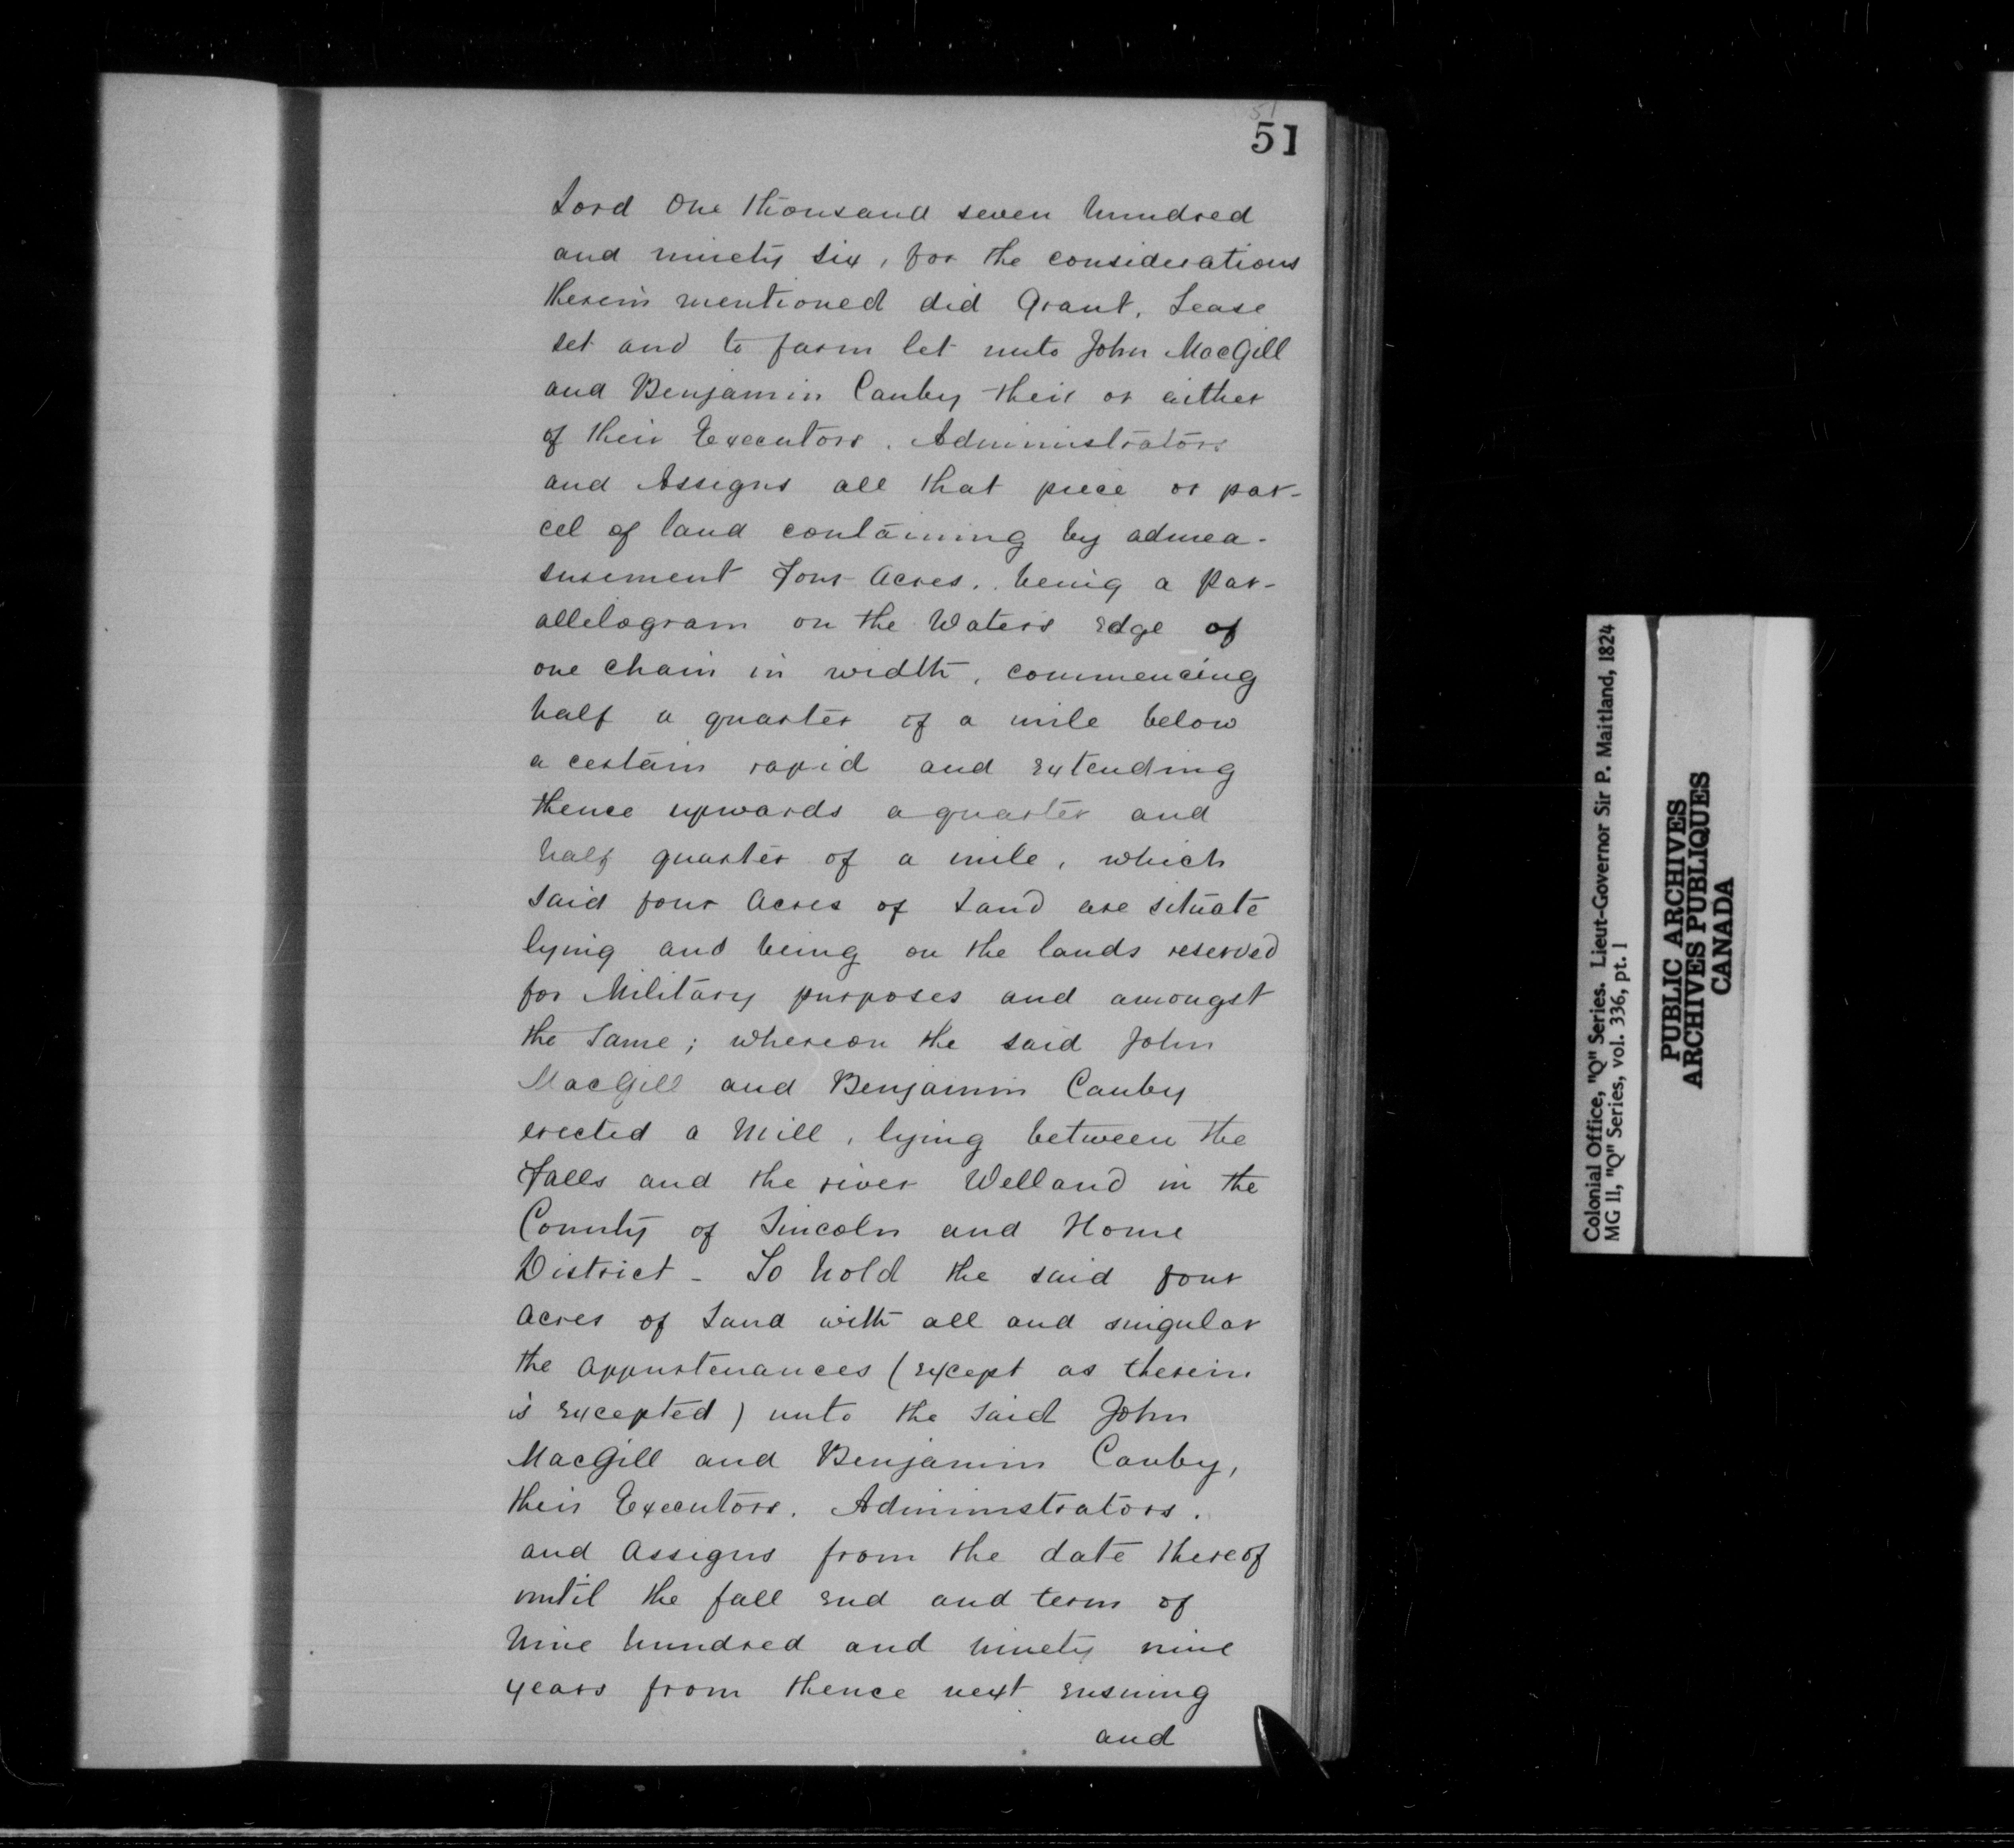 51
51
Lord One thousand seven hundred
and ninety six, for the considerations
therein mentioned did Grant, Lease
set and to farm let unto John MacGill
and Benjamin Canby their or either
of their Executors. Administrators
and Assigns all that piece or par-
cel of land containing by admea-
surement four Acres. being a Par-
allelogram on the Waters edge of
one chain in width, commencing
half a quarter of a mile below
a certain rapid and extending
thence upwards a quarter and
half quarter of a mile, which
said four Acres of Land are situate
lying and being on the lands reserved
for Military purposes and amongst
the same; whereon the said John
MacGill and Benjamin Canby
erected a Mill, lying between the
Falls and the river Welland in the
County of Lincoln and Home
District - To hold the said four
acres of Land with all and singular
the appurtenances (except as therein
is excepted) unto the said John
MacGill and Benjamin Canby,
their Executors. Administrators.
and Assigns from the date thereof
until the full end and term of
Nine hundred and ninety nine
years from thence next ensuing
and
Colonial Office, "Q" Series. Lieut-Governor Sir P. Maitland, 1824
MG 11, "Q" Series, vol. 336, pt. 1
PUBLIC ARCHIVES
ARCHIVES PUBLIQUES
CANADA